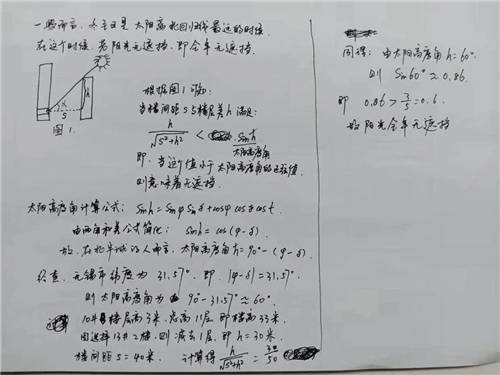 一般而言，冬至日是太阳离北回归线最远的时候
在这个时候，若阳光无遮挡，即全年无遮挡.
h
s
图1.
根据图1可知:
当楼间距S与楼层差h满足:
h/√(s²+h²) < sin h
太阳高度角
即，当这个值小于太阳高度角的正弦值，
则意味着无遮挡.
太阳高度角计算公式: sin h = sinφ sinδ + cosφ cosδ cos t.
由两角和差公式简化: sin h = cos(φ-δ)
故，在北半球的人而言，太阳高度角 h = 90° - (φ-δ)
经查，无锡市纬度为 31.57°. 即 |φ-δ| = 31.57°.
则太阳高度角为 90° - 31.57° ≈ 60°.
10# 楼层高3米，总高11层，即楼高33米.
因选择13#2楼，则减去1层，即h=30米
楼间距 s=40米. 计算得 h/√(s²+h²) = 30/50
同理: 由太阳高度角 h=60°
则 Sin60° ≈ 0.86
即 0.86 > 3/5 = 0.6.
故阳光全年无遮挡